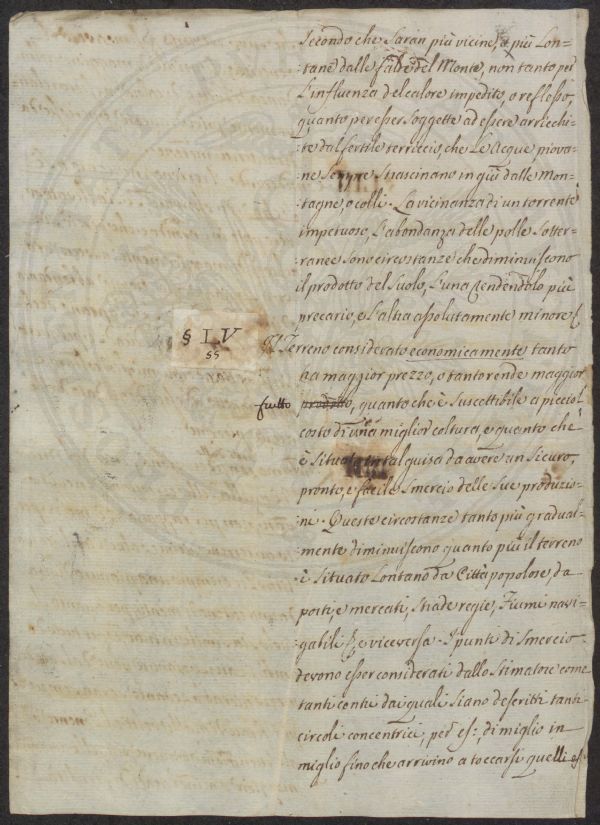 Secondo che saran più vicine, o più Lon=
:tane dalle falde del Monte, non tanto per
L'influenza del calore impedito, o reflesso,
quanto per esser soggette ad essere arricchi=
:te dal fertile terriccio, che Le Acque piova=
:ne sempre strascinano in giù dalle Mon=
:tagne, o colli. La vicinanza di un torrente
impetuoso, L'abondanza delle polle Sotter=
:ranee sono circostanze che diminuiscono
il prodotto del Suolo, L'una rendendolo più
precario, e L'altra assolutamente minore
§ LV
§§
Il Terreno considerato economicamente tanto
ha maggior prezzo, o tanto rende maggior
frutto prodotto, quanto che è suscettibile a picciol
costo di una miglior coltura, e quanto che
è situato in tal guisa da avere un sicuro,
pronto, e facile smercio delle sue produzio=
:ni. Queste circostanze tanto più gradual=
:mente diminuiscono quanto più il terreno
è situato Lontano da Città popolose, da
porti, e mercati, strade regie, Fiumi navi=
:gabili &c e viceversa. I punti di smercio
devono esser considerati dallo Stimatore come
tanti centri da quali siano descritti tanti
circoli concentrici, per es:, di miglio in
miglio fino che arrivino a toccarsi quelli es=